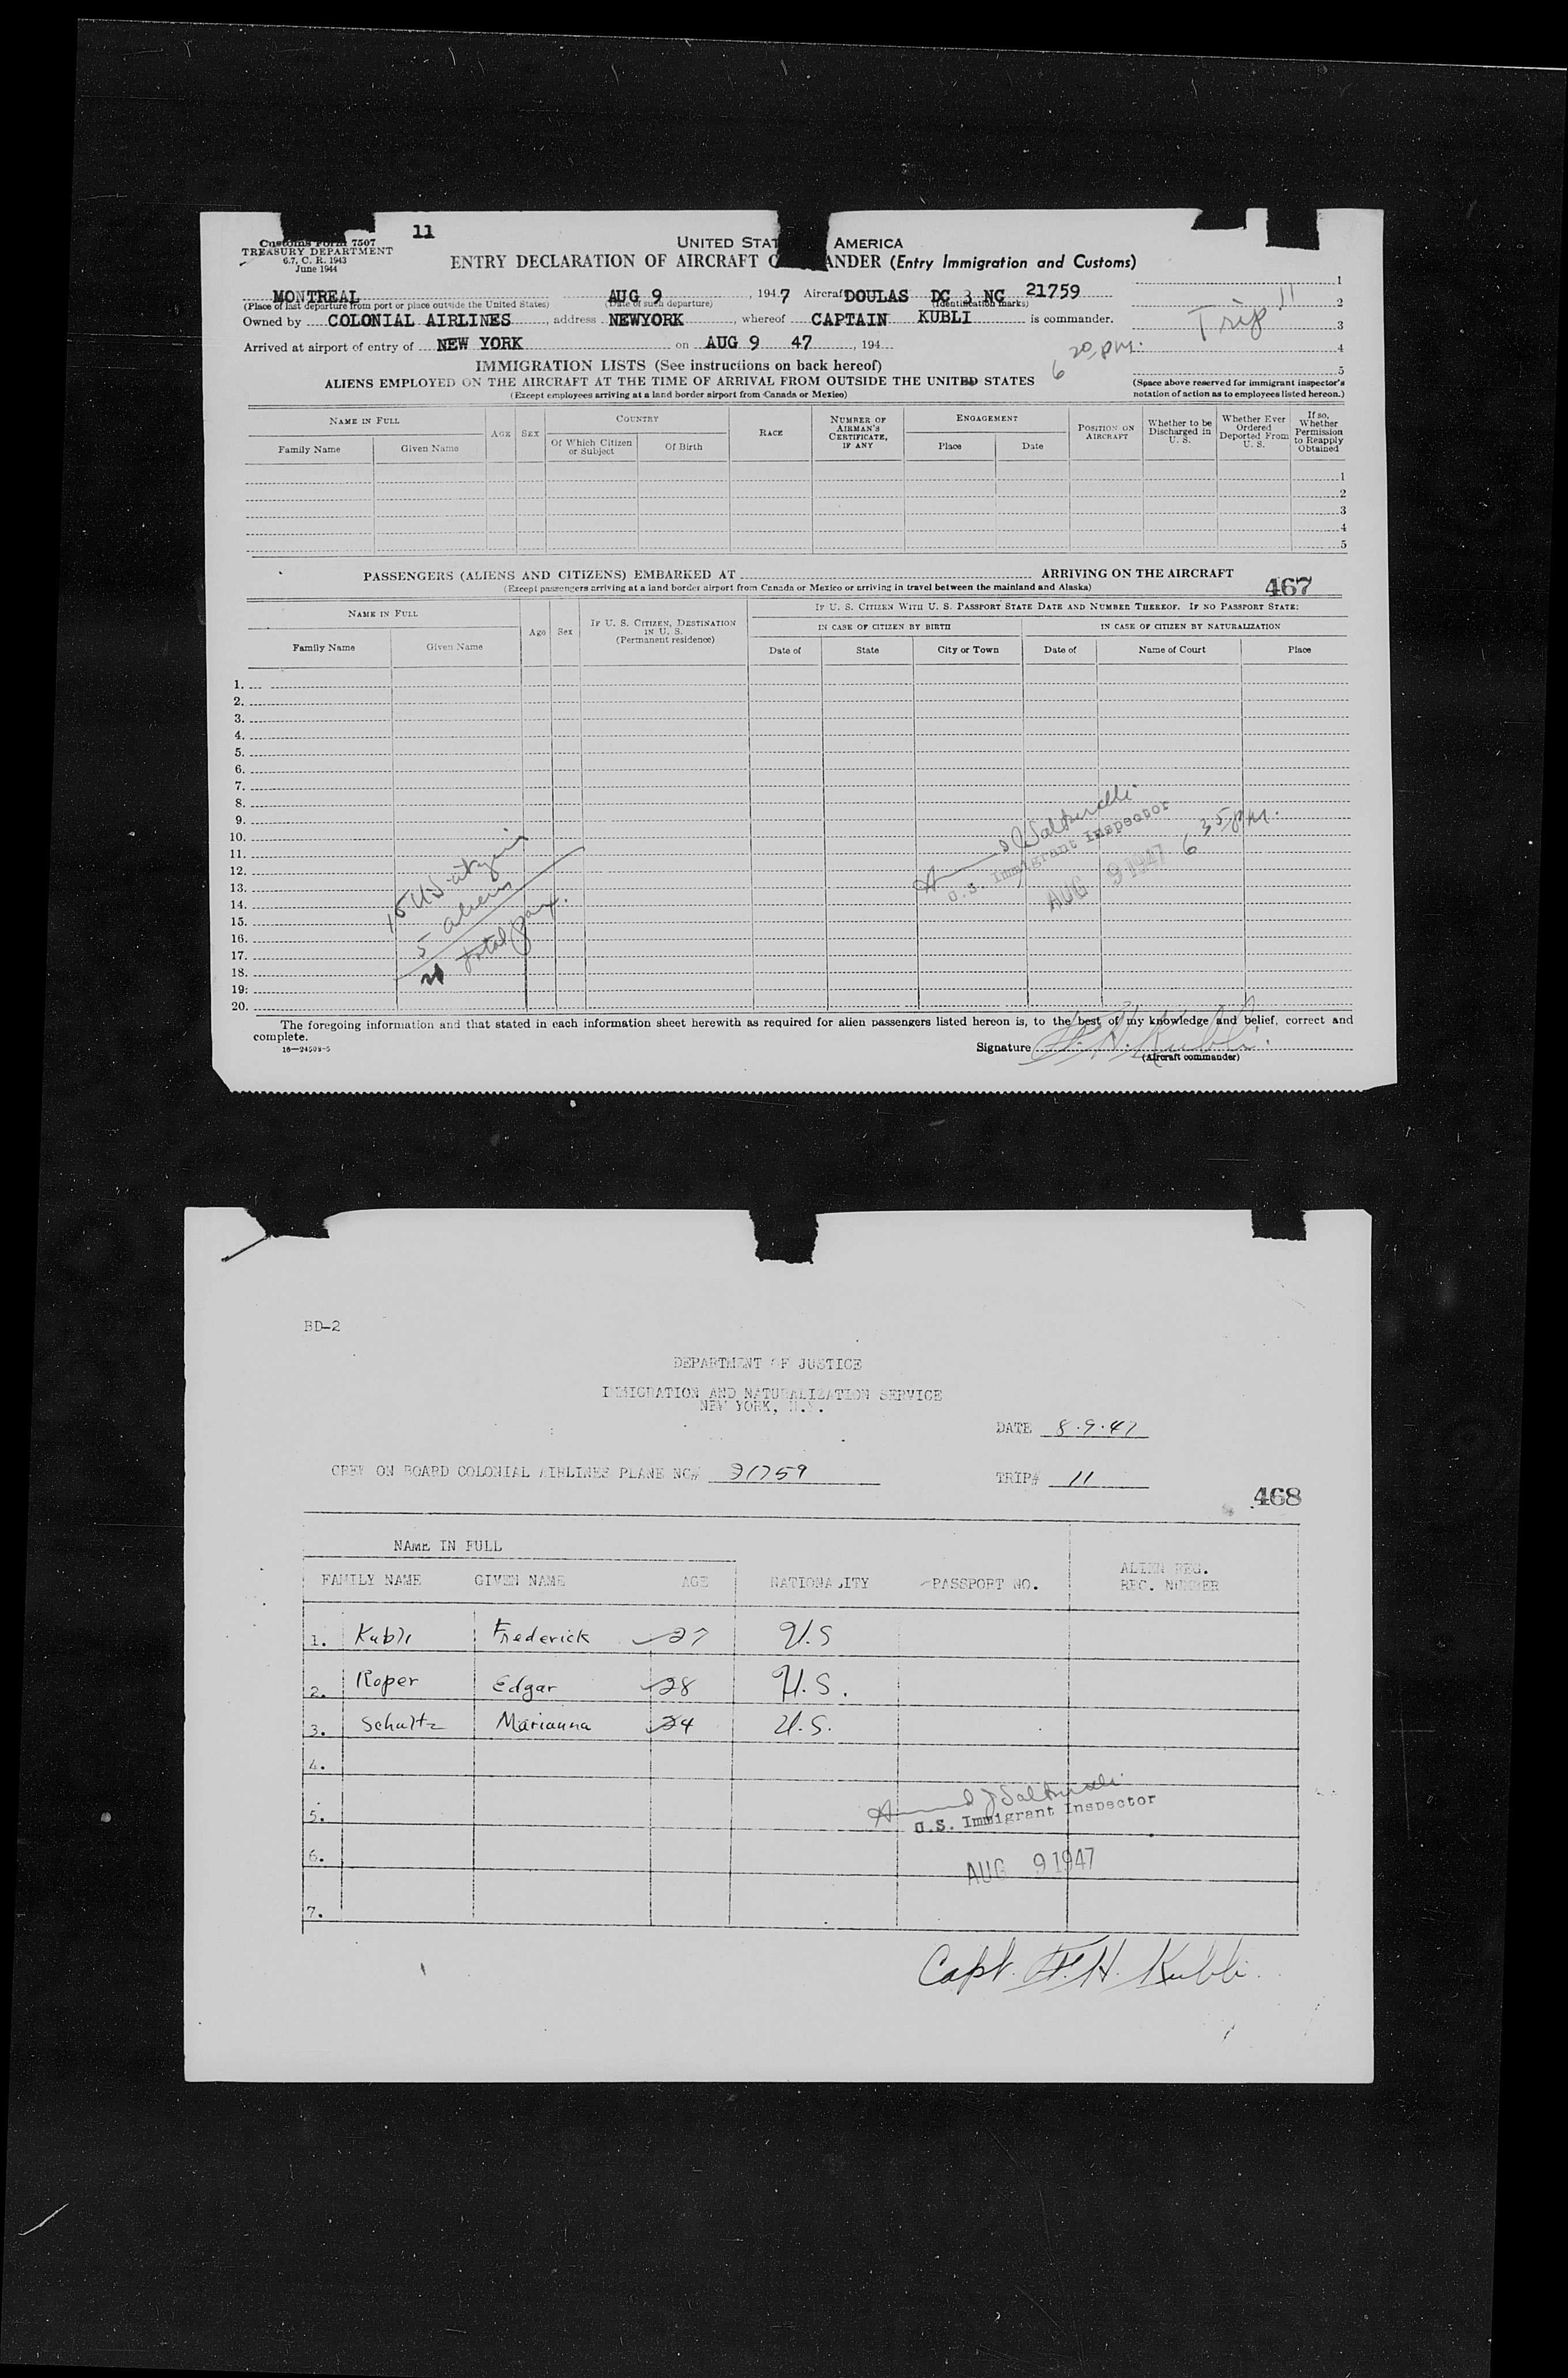 11
Customs Form 7507
TREASURY DEPARTMENT
6.7, C. R. 1943
June 1944
UNITED STAT AMERICA
ENTRY DECLARATION OF AIRCRAFT C ANDER (Entry Immigration and Customs)
MONTREAL AUG 9, 1947 Aircraft DOULAS DC 3 NC 21759
(Place of last departure from port or place outside the United States) (Date of such departure) (Identification marks)
Owned by COLONIAL AIRLINES, address NEWYORK, whereof CAPTAIN KUBLI is commander.
Arrived at airport of entry of NEW YORK on AUG 9 47, 194
1
2
3
4
5
Trip 11
6 20 pm.
(Space above reserved for immigrant inspector's
notation of action as to employees listed hereon.)
IMMIGRATION LISTS (See instructions on back hereof)
ALIENS EMPLOYED ON THE AIRCRAFT AT THE TIME OF ARRIVAL FROM OUTSIDE THE UNITED STATES
(Except employees arriving at a land border airport from Canada or Mexico)
NAME IN FULL
Family Name Given Name
AGE SEX
COUNTRY
Of Which Citizen or Subject Of Birth
RACE
NUMBER OF AIRMAN'S CERTIFICATE, IF ANY
ENGAGEMENT
Place Date
POSITION ON AIRCRAFT
Whether to be Discharged in U. S.
Whether Ever Ordered Deported From U. S.
If so, Whether Permission to Reapply Obtained
1
2
3
4
5
PASSENGERS (ALIENS AND CITIZENS) EMBARKED AT ARRIVING ON THE AIRCRAFT
(Except passengers arriving at a land border airport from Canada or Mexico or arriving in travel between the mainland and Alaska)
467
NAME IN FULL
Family Name Given Name
Age Sex
IF U. S. CITIZEN, DESTINATION IN U. S.
(Permanent residence)
IF U. S. CITIZEN WITH U. S. PASSPORT STATE DATE AND NUMBER THEREOF. IF NO PASSPORT STATE:
IN CASE OF CITIZEN BY BIRTH IN CASE OF CITIZEN BY NATURALIZATION
Date of State City or Town Date of Name of Court Place
1.
2.
3.
4.
5.
6.
7.
8.
9.
10.
11.
12.
13.
14.
15.
16.
17.
18.
19.
20.
5 aliens
total pax.
U.S. Immigrant Inspector
AUG 9 1947
6 35 pm.
The foregoing information and that stated in each information sheet herewith as required for alien passengers listed hereon is, to the best of my knowledge and belief, correct and
complete.
16—24508-5
Signature F. H. Kubli.
(Aircraft commander)
BD-2
DEPARTMENT OF JUSTICE
IMMIGRATION AND NATURALIZATION SERVICE
NEW YORK, N.Y.
DATE 8.9.47
CREW ON BOARD COLONIAL AIRLINES PLANE NC# 21759
TRIP# 11
468
NAME IN FULL
FAMILY NAME GIVEN NAME AGE NATIONALITY PASSPORT NO. ALIEN REG. REC. NUMBER
1. Kubli Frederick 27 U.S
2. Roper Edgar 28 U.S.
3. Schultz Marianna 24 U.S.
4.
5.
U.S. Immigrant Inspector
6.
AUG 9 1947
7.
Capt. F. H. Kubli.